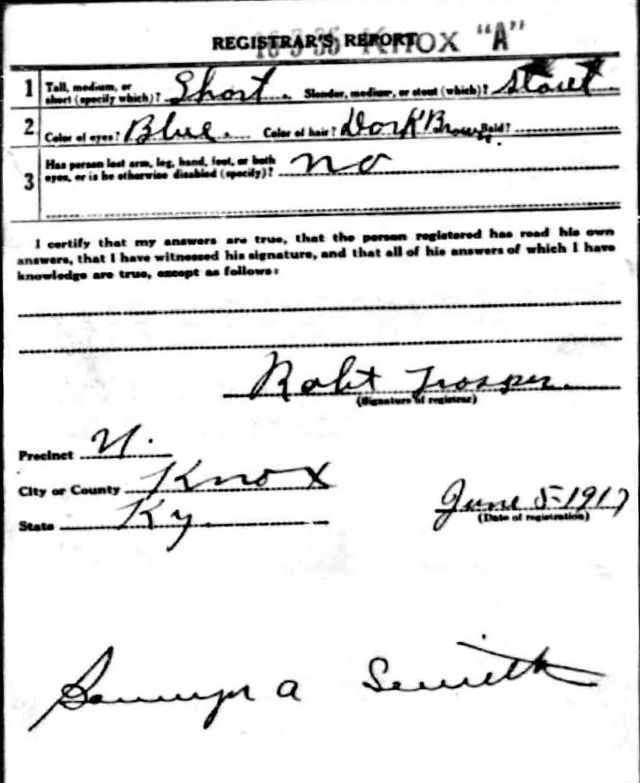 REGISTRAR'S REPORT KNOX "A"
1 Tall, medium, or short (specify which)? Short. Slender, medium, or stout (which)? Stout
2 Color of eyes? Blue. Color of hair? Dark Brown. Bald?
3 Has person lost arm, leg, hand, foot, or both
eyes, or is he otherwise disabled (specify)? no
I certify that my answers are true, that the person registered has read his own
answers, that I have witnessed his signature, and that all of his answers of which I have
knowledge are true, except as follows:
Robt Trosper
(Signature of registrar)
Precinct
City or County Knox
State Ky.
June 5-1917
(Date of registration)
a